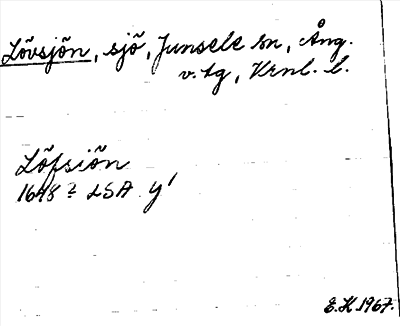 Lövsjön, sjö, Junsele sn, Ång.
v. lg, Krnl. l.
Löfsiön
1648? LSA y'
E.H 1967.